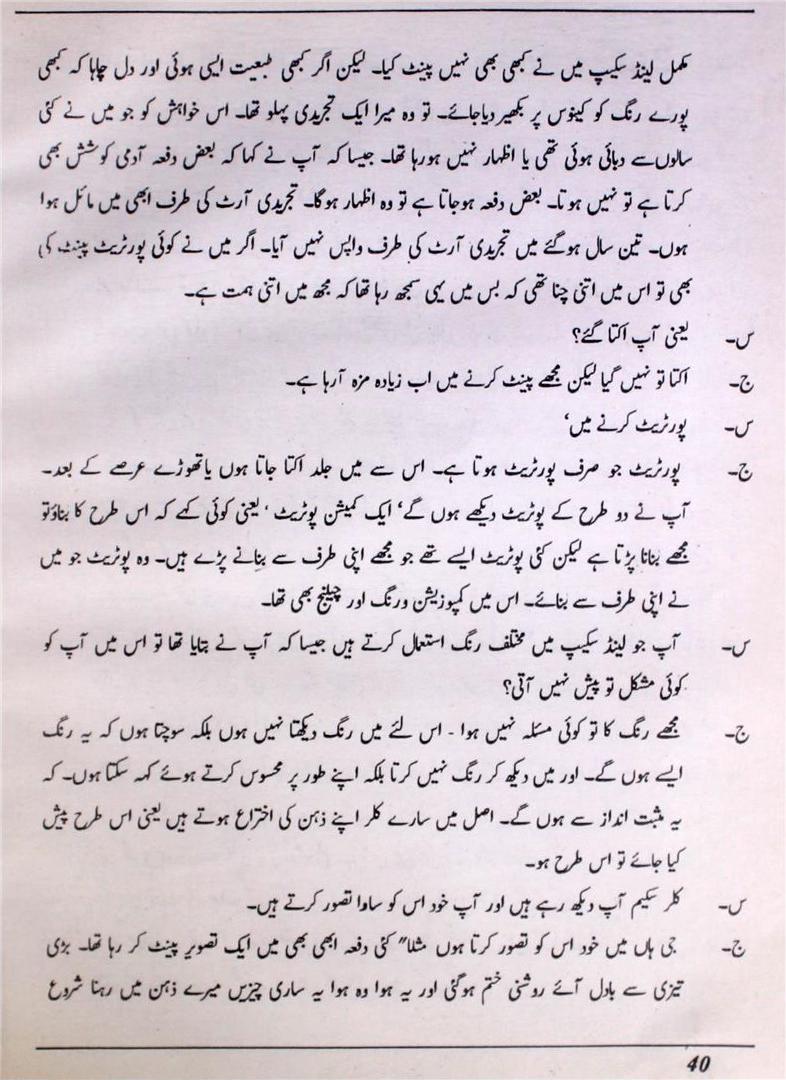 مکمل لینڈ سکیپ میں نے کبھی بھی نہیں پینٹ کیا۔ لیکن اگر کبھی طبعیت ایسی ہوئی اور دل چاہا کہ کبھی
پورے رنگ کو کینوس پر بکھیر دیاجائے۔ تو وہ میرا ایک تجریدی پہلو تھا۔ اس خواہش کو جو میں نے کئی
سالوں سے دبائی ہوئی تھی یا اظہار نہیں ہو رہا تھا۔ جیسا کہ آپ نے کہا کہ بعض دفعہ آدمی کوشش بھی
کرتا ہے تو نہیں ہوتا۔ بعض دفعہ ہوجاتا ہے تو وہ اظہار ہوگا۔ تجریدی آرٹ کی طرف ابھی میں مائل ہوا
ہوں۔ تین سال ہوگئے میں تجریدی آرٹ کی طرف واپس نہیں آیا۔ اگر میں نے کوئی پورٹریٹ پینٹ کی
بھی تو اس میں اتنی چنا تھی کہ بس میں یہی سمجھ رہا تھا کہ مجھ میں اتنی ہمت ہے۔
س۔ یعنی آپ اکتا گئے؟
ج۔ اکتا تو نہیں گیا لیکن مجھے پینٹ کرنے میں اب زیادہ مزہ آرہا ہے۔
س۔ پورٹریٹ کرنے میں‘
ج۔ پورٹریٹ جو صرف پورٹریٹ ہوتا ہے۔ اس سے میں جلد اکتا جاتا ہوں یاتھوڑے عرصے کے بعد۔
آپ نے دو طرح کے پوٹریٹ دیکھے ہوں گے‘ ایک کمیشن پوٹریٹ ‘ یعنی کوئی کہے کہ اس طرح کا بناؤتو
مجھے بنانا پڑتا ہے لیکن کئی پوٹریٹ ایسے تھے جو مجھے اپنی طرف سے بنانے پڑے ہیں۔ وہ پوٹریٹ جو میں
نے اپنی طرف سے بنائے۔ اس میں کمپوزیشن ورنگ اور چیلنج بھی تھا۔
س۔ آپ جو لینڈ سکیپ میں مختلف رنگ استعمال کرتے ہیں جیسا کہ آپ نے بتایا تھا تو اس میں آپ کو
کوئی مشکل تو پیش نہیں آتی؟
ج۔ مجھے رنگ کا تو کوئی مسئلہ نہیں ہوا - اس لئے میں رنگ دیکھتا نہیں ہوں بلکہ سوچتا ہوں کہ یہ رنگ
ایسے ہوں گے۔ اور میں دیکھ کر رنگ نہیں کرتا بلکہ اپنے طور پر محسوس کرتے ہوئے کہہ سکتا ہوں۔ کہ
یہ مثبت انداز سے ہوں گے۔ اصل میں سارے کلر اپنے ذہن کی اختراع ہوتے ہیں یعنی اس طرح پیش
کیا جائے تو اس طرح ہو۔
س۔ کلر سکیم آپ دیکھ رہے ہیں اور آپ خود اس کو ساوا تصور کرتے ہیں۔
ج۔ جی ہاں میں خود اس کو تصور کرتا ہوں مثلا" کئی دفعہ ابھی بھی میں ایک تصویر پینٹ کر رہا تھا۔ بڑی
تیزی سے بادل آئے روشنی ختم ہوگئی اور یہ ہوا وہ ہوا یہ ساری چیزیں میرے ذہن میں رہنا شروع
40